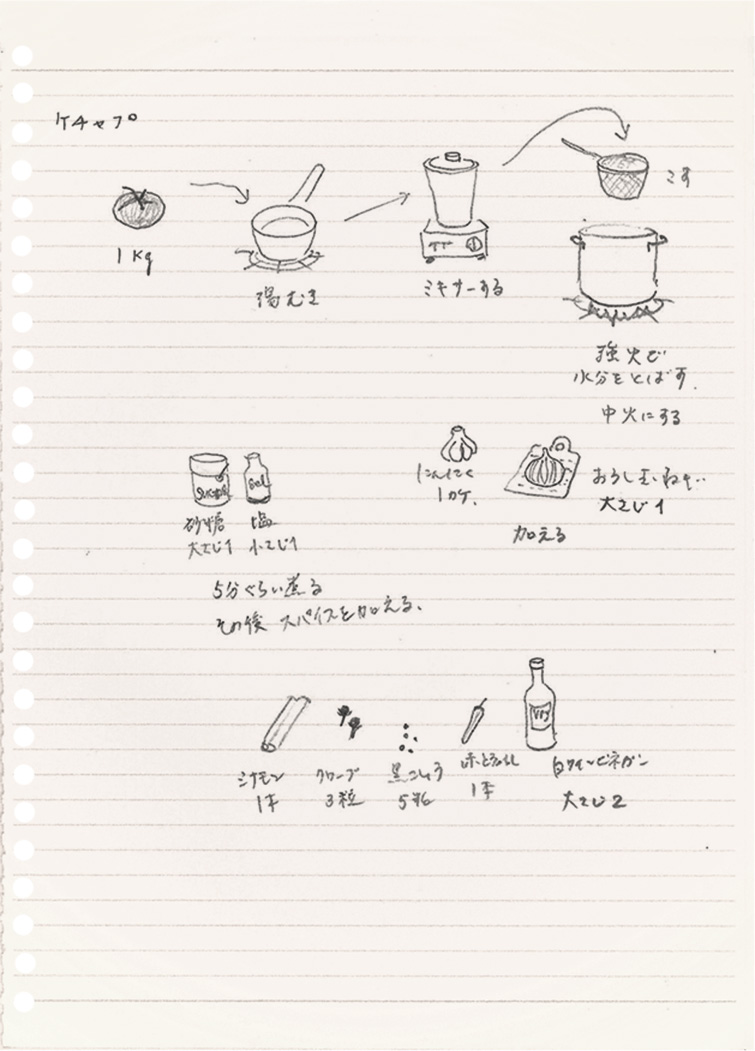 ケチャプ
1Kg
湯むき
ミキサーする
こす
強火で
水分をとばす.
中火にする
にんにく
1カケ.
おろし玉ねぎ
大さじ1
加える
Sugar
Sal
砂糖
大さじ1
塩
小さじ1
5分ぐらい煮る
その後 スパイスを加える.
シナモン
1本
クローブ
3粒
黒こしょう
5粒
赤とうがらし
1本
白ワインビネガー
大さじ2